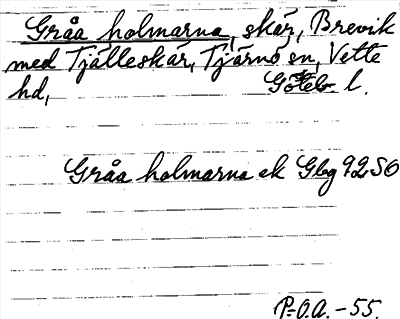 Gråa holmarna, skär, Brevik
med Tjälleskär, Tjärnö sn, Vette
hd, Göteb l.
Gråa holmarna ek Gbg 92 SO
P-O.A. -55.